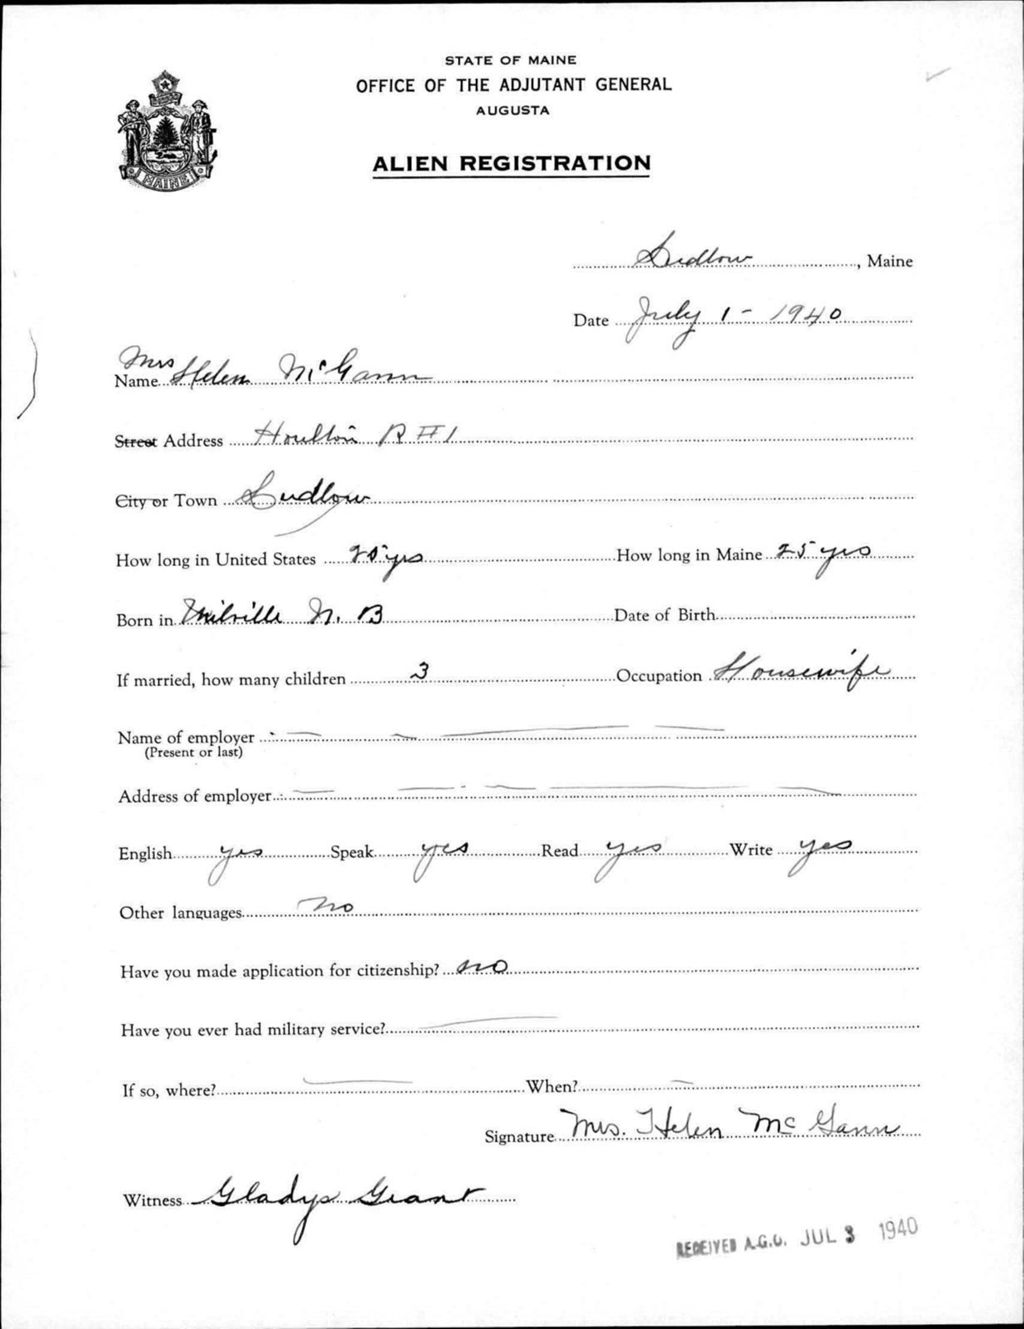 STATE OF MAINE
OFFICE OF THE ADJUTANT GENERAL
AUGUSTA
MAINE
ALIEN REGISTRATION
Ludlow, Maine
Date July 1 - 1940
Name Mrs Helen McGann
Street Address Houlton R #1
City or Town Ludlow
How long in United States 25 yrs How long in Maine 25 yrs
Born in N. B Date of Birth
If married, how many children 3 Occupation Housewife
Name of employer
(Present or last)
Address of employer
English yes Speak yes Read yes Write yes
Other languages no
Have you made application for citizenship? no
Have you ever had military service?
If so, where? When?
Signature Mrs. Helen McGann
Witness Gladys Grant
RECEIVED A.G.O. JUL 3 1940